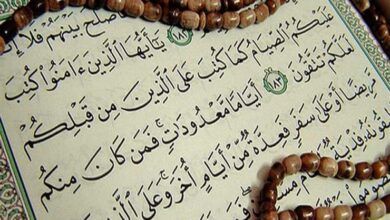 صلح بينهم فلا
١٨٢ يَٰٓأَيُّهَا ٱلَّذِينَ ءَامَنُوا۟ كُتِبَ
عَلَيْكُمُ ٱلصِّيَامُ كَمَا كُتِبَ عَلَى ٱلَّذِينَ مِن قَبْلِكُمْ
لَعَلَّكُمْ تَتَّقُونَ ١٨٣ أَيَّامًا مَّعْدُودَٰتٍ فَمَن كَانَ مِنكُم
مَّرِيضًا أَوْ عَلَىٰ سَفَرٍ فَعِدَّةٌ مِّنْ أَيَّامٍ أُخَرَ وَعَلَى
فدية